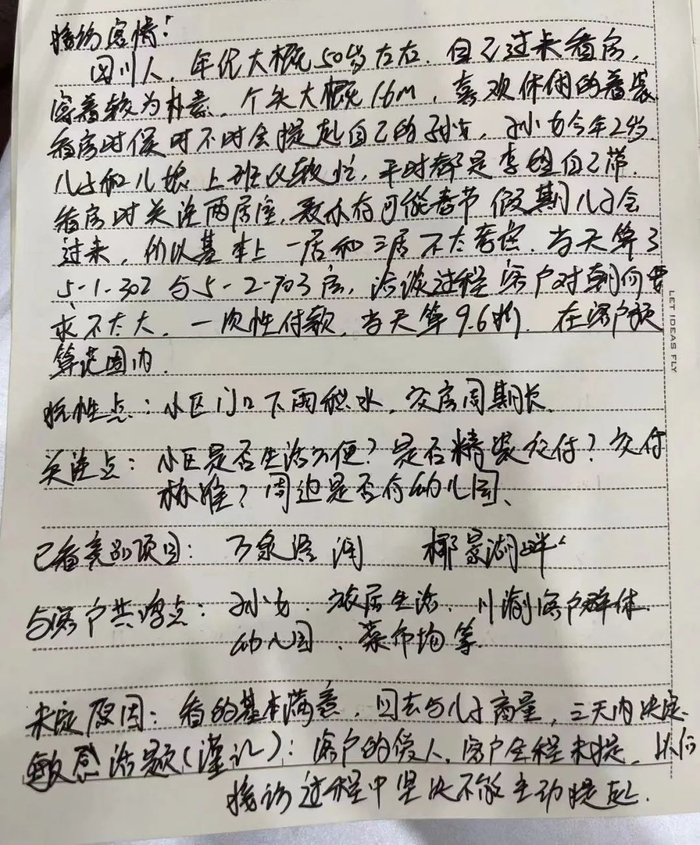 接访客情:
四川人，年纪大概50岁左右. 自己过来看房,
穿着较为朴素，个头大概1.6m，喜欢休闲的着装
看房时候时不时会提起自己的孙女，孙女今年2岁
儿子和儿媳上班比较忙，平时都是李姐自己带.
看房时关注两居室, 表示有可能春节假期儿子会
过来，所以基本上一居和三居不太考虑. 当天算了
5-1-302 与5-2-703房, 洽谈过程客户对朝向要
求不太大，一次性付款，当天算9.6折. 在客户预
算范围内.
抗性点：小区门口下雨积水，交房周期长.
关注点：小区是否生活方便？是否精装交付？交付
标准？周边是否有幼儿园、
已看类别项目： 万泉 椰景湖畔
与客户共鸣点：孙女. 旅居生活. 川渝客户群体
幼儿园、菜市场等.
未定原因：看的基本满意，回去与儿子商量，三天内决定.
敏感话题(谨记)：客户的 人, 客户全程未提，
接访过程中坚决不能主动提起.
LET IDEAS FLY